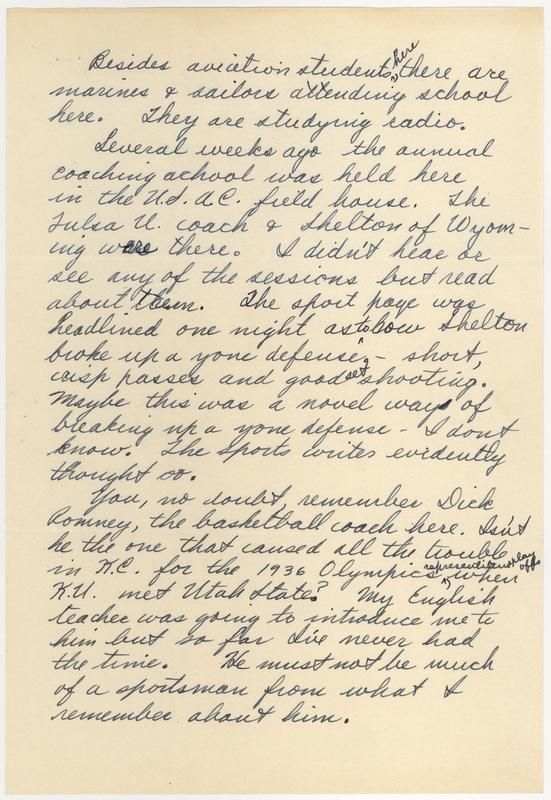 Besides aviation students, here there are
marines & sailors attending school
here. They are studying radio.
Several weeks ago the annual
coaching school was held here
in the U.S.A.C. field house. The
Tulsa U. coach & Shelton of Wyom-
ing were there. I didn't hear or
see any of the sessions but read
about them. The sport page was
headlined one night as to how Shelton
broke up a zone defense, - short,
crisp passes and good set shooting.
Maybe this was a novel way of
breaking up a zone defense - I dont
know. The sports writer evidently
thought so.
You, no doubt, remember Dick
Romney, the basketball coach here. Isn't
he the one that caused all the trouble
in K.C. for the 1936 Olympics play offs when
K.U. met Utah State? My English
teacher was going to introduce me to
him but so far I've never had
the time. He must not be much
of a sportsman from what I
remember about him.